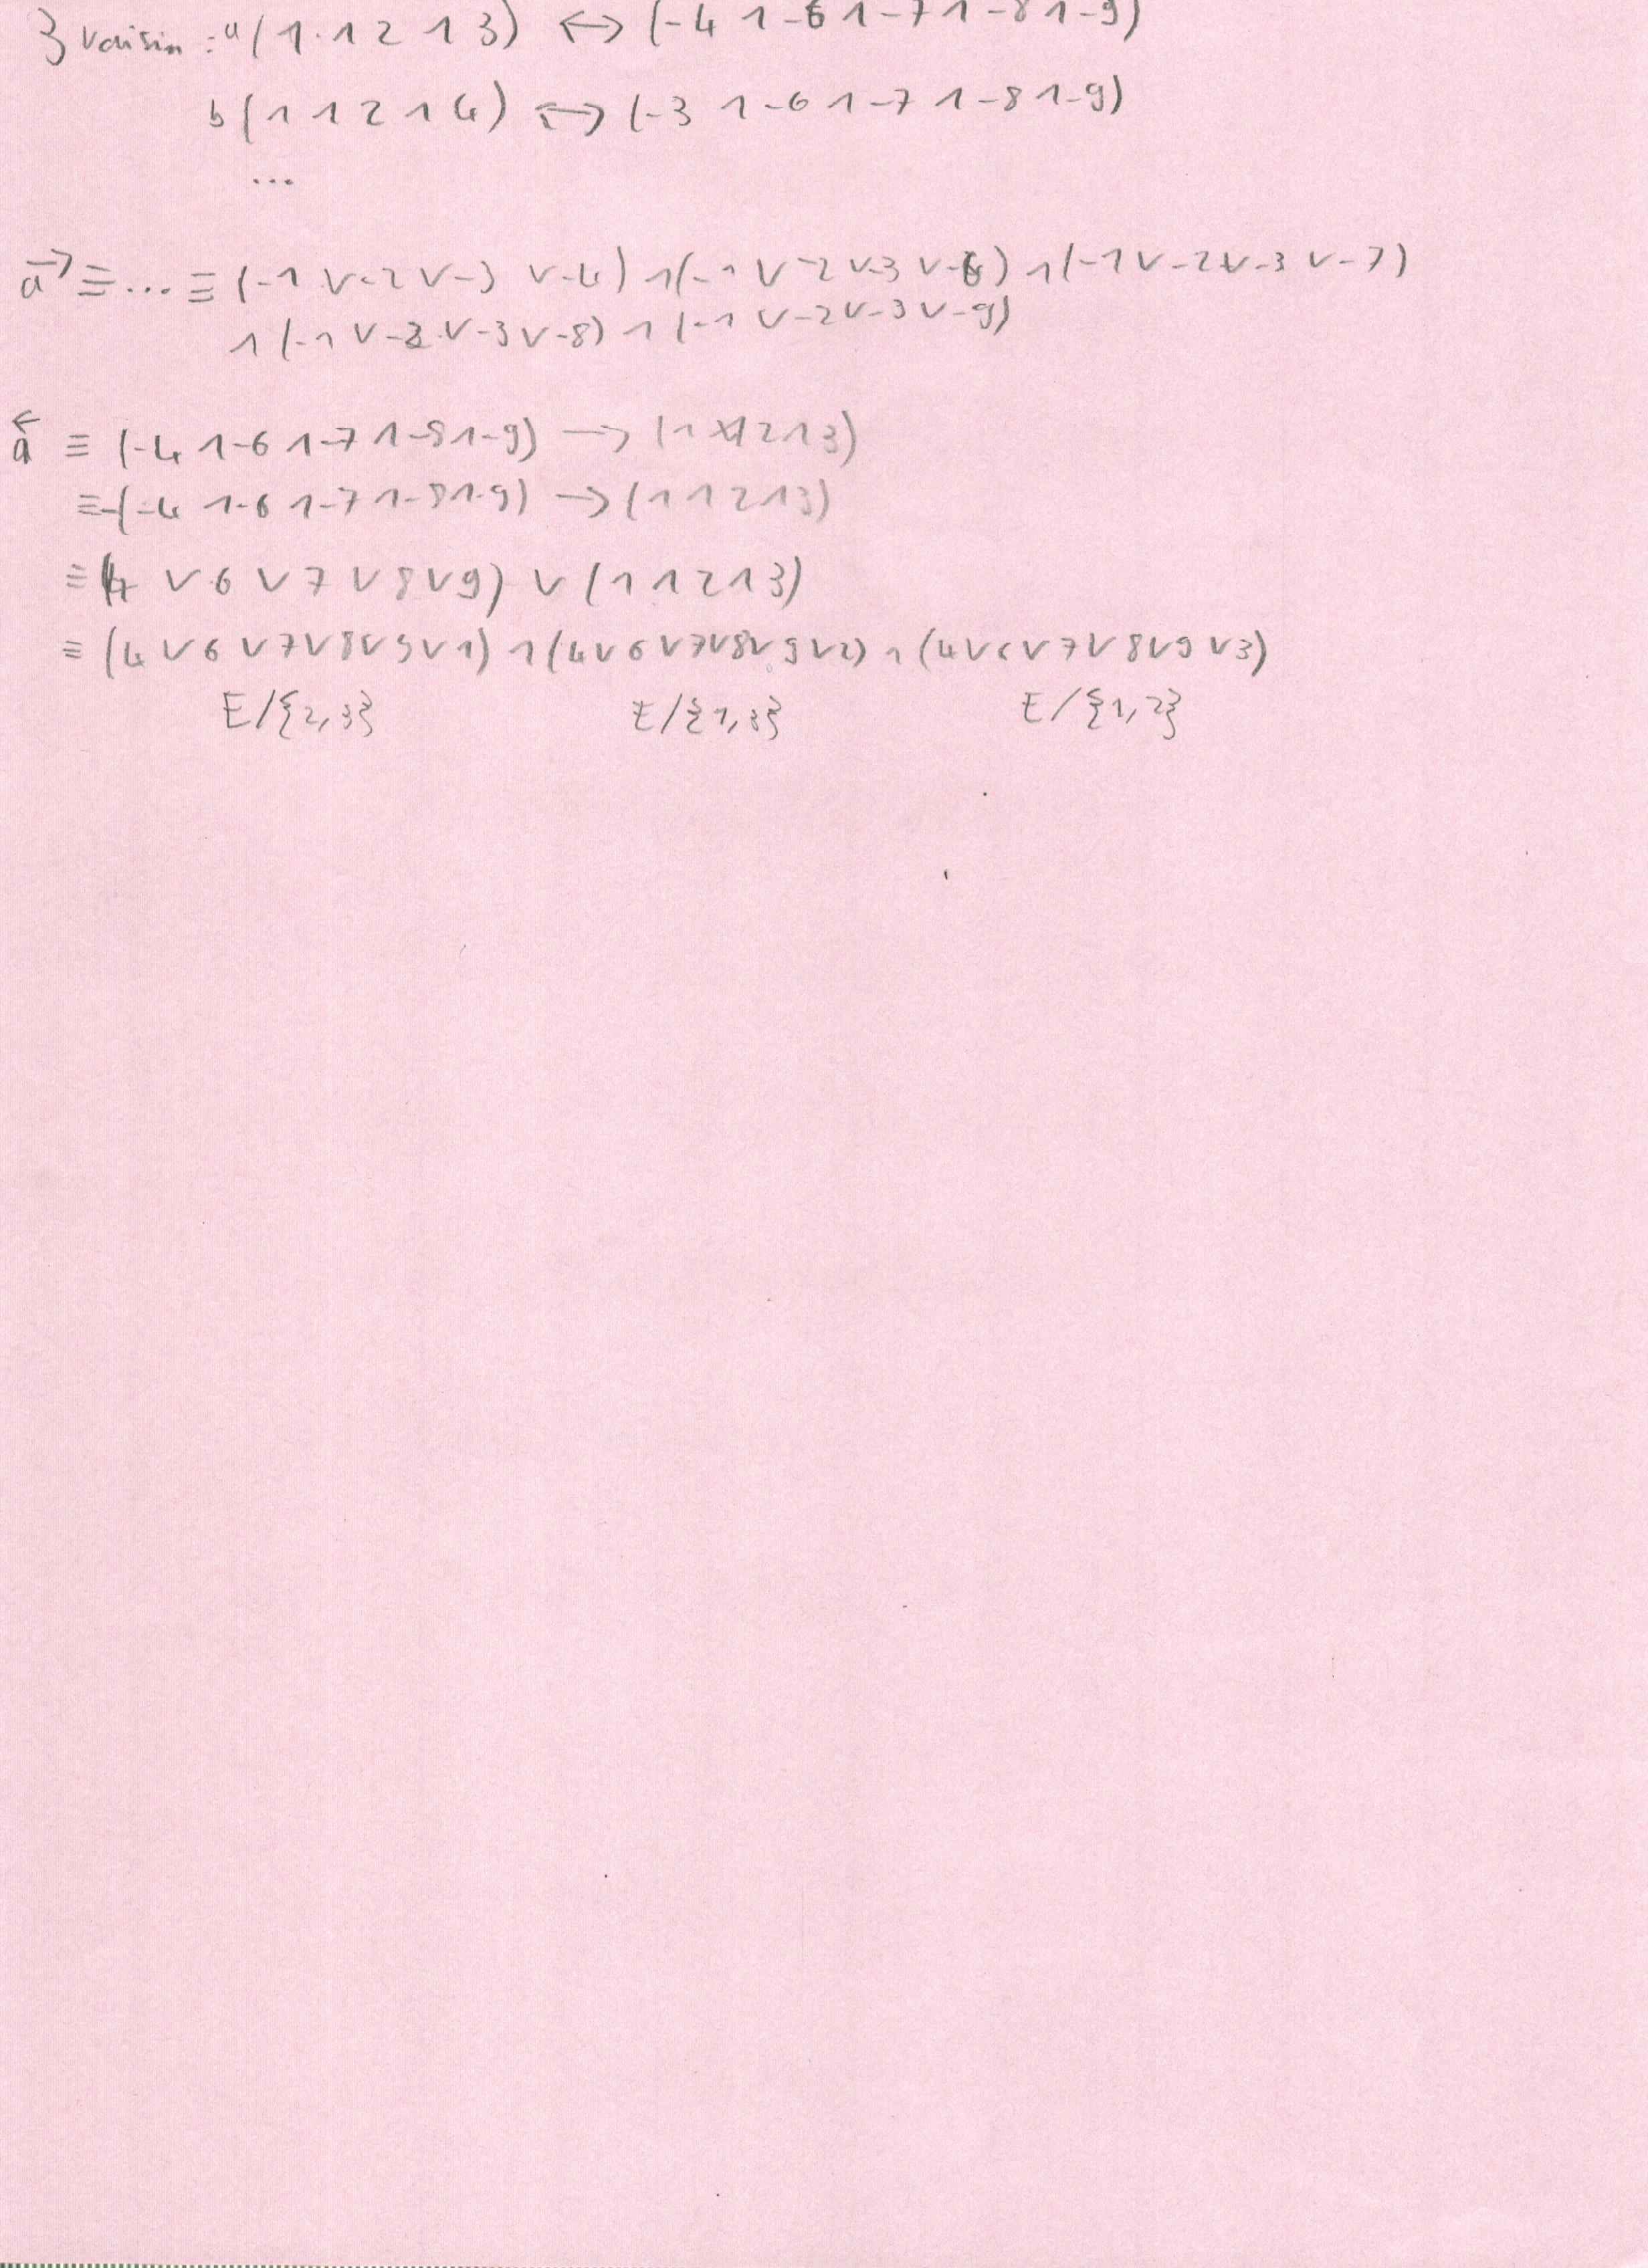 3 voisin : a (1 ∧ 2 ∧ 3) ↔ (-4 ∧ -6 ∧ -7 ∧ -8 ∧ -9)
b (1 ∧ 2 ∧ 4) ↔ (-3 ∧ -6 ∧ -7 ∧ -8 ∧ -9)
...
a→ ≡ ... ≡ (-1 ∨ -2 ∨ -3 ∨ -4) ∧ (-1 ∨ -2 ∨ -3 ∨ -6) ∧ (-1 ∨ -2 ∨ -3 ∨ -7)
∧ (-1 ∨ -2 ∨ -3 ∨ -8) ∧ (-1 ∨ -2 ∨ -3 ∨ -9)
a← ≡ (-4 ∧ -6 ∧ -7 ∧ -8 ∧ -9) → (1 ∧ 2 ∧ 3)
≡ -(-4 ∧ -6 ∧ -7 ∧ -8 ∧ -9) → (1 ∧ 2 ∧ 3)
≡ (4 ∨ 6 ∨ 7 ∨ 8 ∨ 9) ∨ (1 ∧ 2 ∧ 3)
≡ (4 ∨ 6 ∨ 7 ∨ 8 ∨ 9 ∨ 1) ∧ (4 ∨ 6 ∨ 7 ∨ 8 ∨ 9 ∨ 2) ∧ (4 ∨ 6 ∨ 7 ∨ 8 ∨ 9 ∨ 3)
E/{2,3} E/{1,3} E/{1,2}